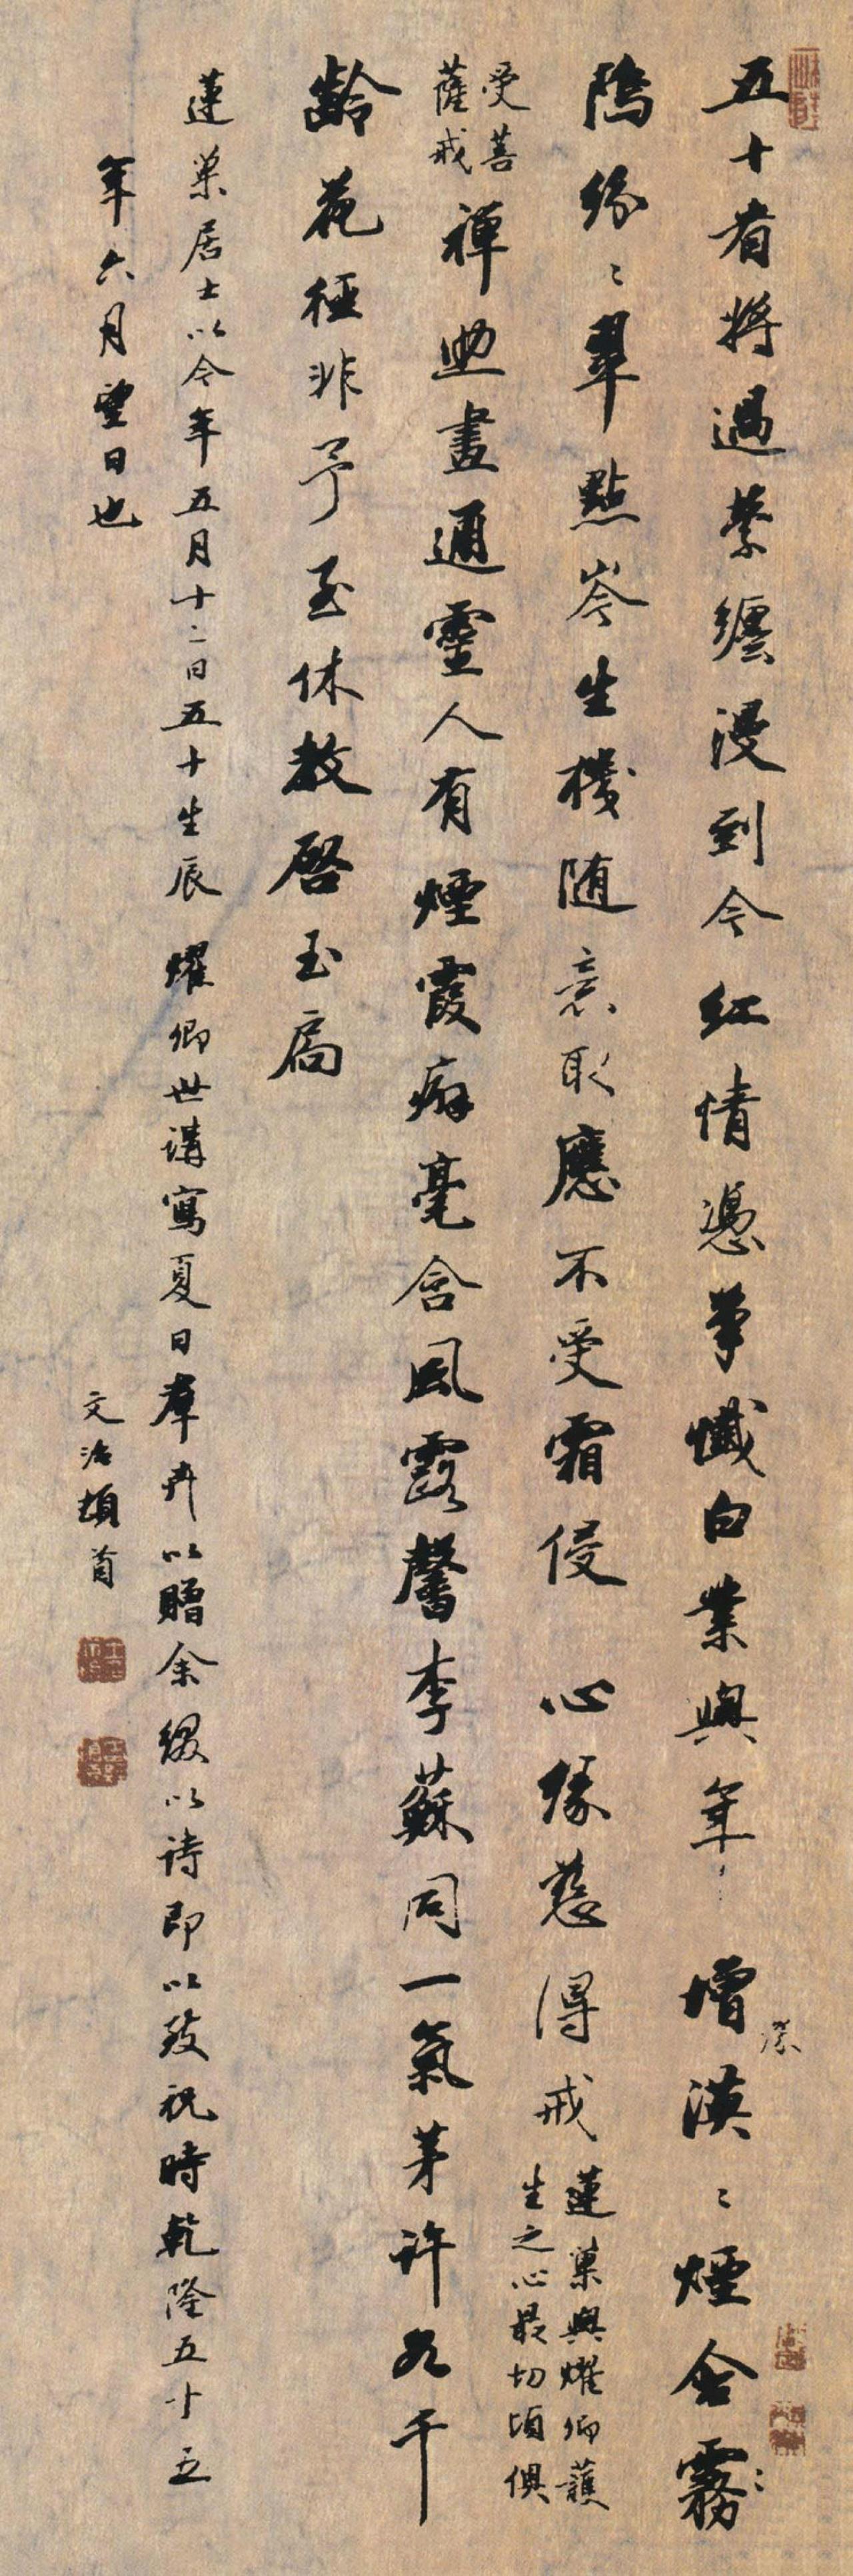 五十看將過縈纏漫到今紅情憑筆懺白業與年增漠〻煙含霧〻
深
隖紛〻翠點岑生機随意取應不受霜侵 心緣慈得戒
蓮巢與燿卿護
生之心最切頃俱
受菩
薩戒
禅助畫通靈人有煙霞癖毫含風露馨李蘇同一氣茅許各千
齡花極非予至休教啓玉扃
蓮巢居士以今年五月十二日五十生辰 燿卿世講寫夏日羣卉以贈余綴以诗即以致祝時乾隆五十五
年六月望日也
文治頓首